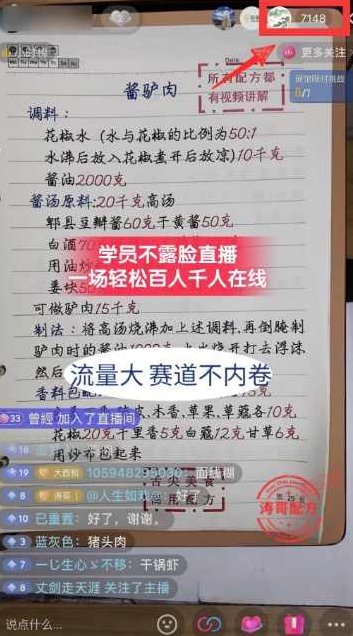 7148
更多关注
酱驴肉
所有配方都
有视频讲解
调料：
花椒水（水与花椒的比例为50:1
水沸后放入花椒煮开后放凉）10千克
酱油2000克
酱汤原料：20千克高汤
郫县豆瓣酱60克干黄酱50克
白酒
学员不露脸直播
一场轻松百人千人在线
用油炒
姜块
可做驴肉15千克
制法：将高汤烧沸加上述调料，再倒腌制
驴肉时的酱油
上火烧开打去浮沫
然后
流量大 赛道不内卷
香料包
33 曾經 加入了直播间
木香，草果，草蔻各10克
花椒20克千里香5克白蔻12克甘草6克
用纱布包起来
19 大西相 105948295030：面线糊
8 涛哥 @人生如戏 好了
舌尖美食
专用配方
涛哥配方
10 已重置：好了，谢谢。
3 蓝灰色：猪头肉
7 一じ生心ゞ不移：干锅虾
8 丈剑走天涯 关注了主播
说点什么...